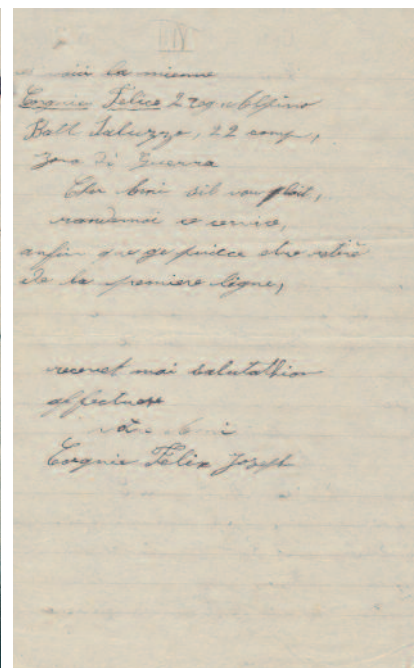 voici la mienne
Cognie Felice 2 reg alpino
Batt Saluzzo, 22 comp,
Zona di Guerra
Cher Ami sil vou plait,
randemoi ce cervice,
anfin que ge puicce etre retiré
de la premiere ligne,
recevet moi salutathion
affectuose
votre Ami
Cognie Felix Joseph